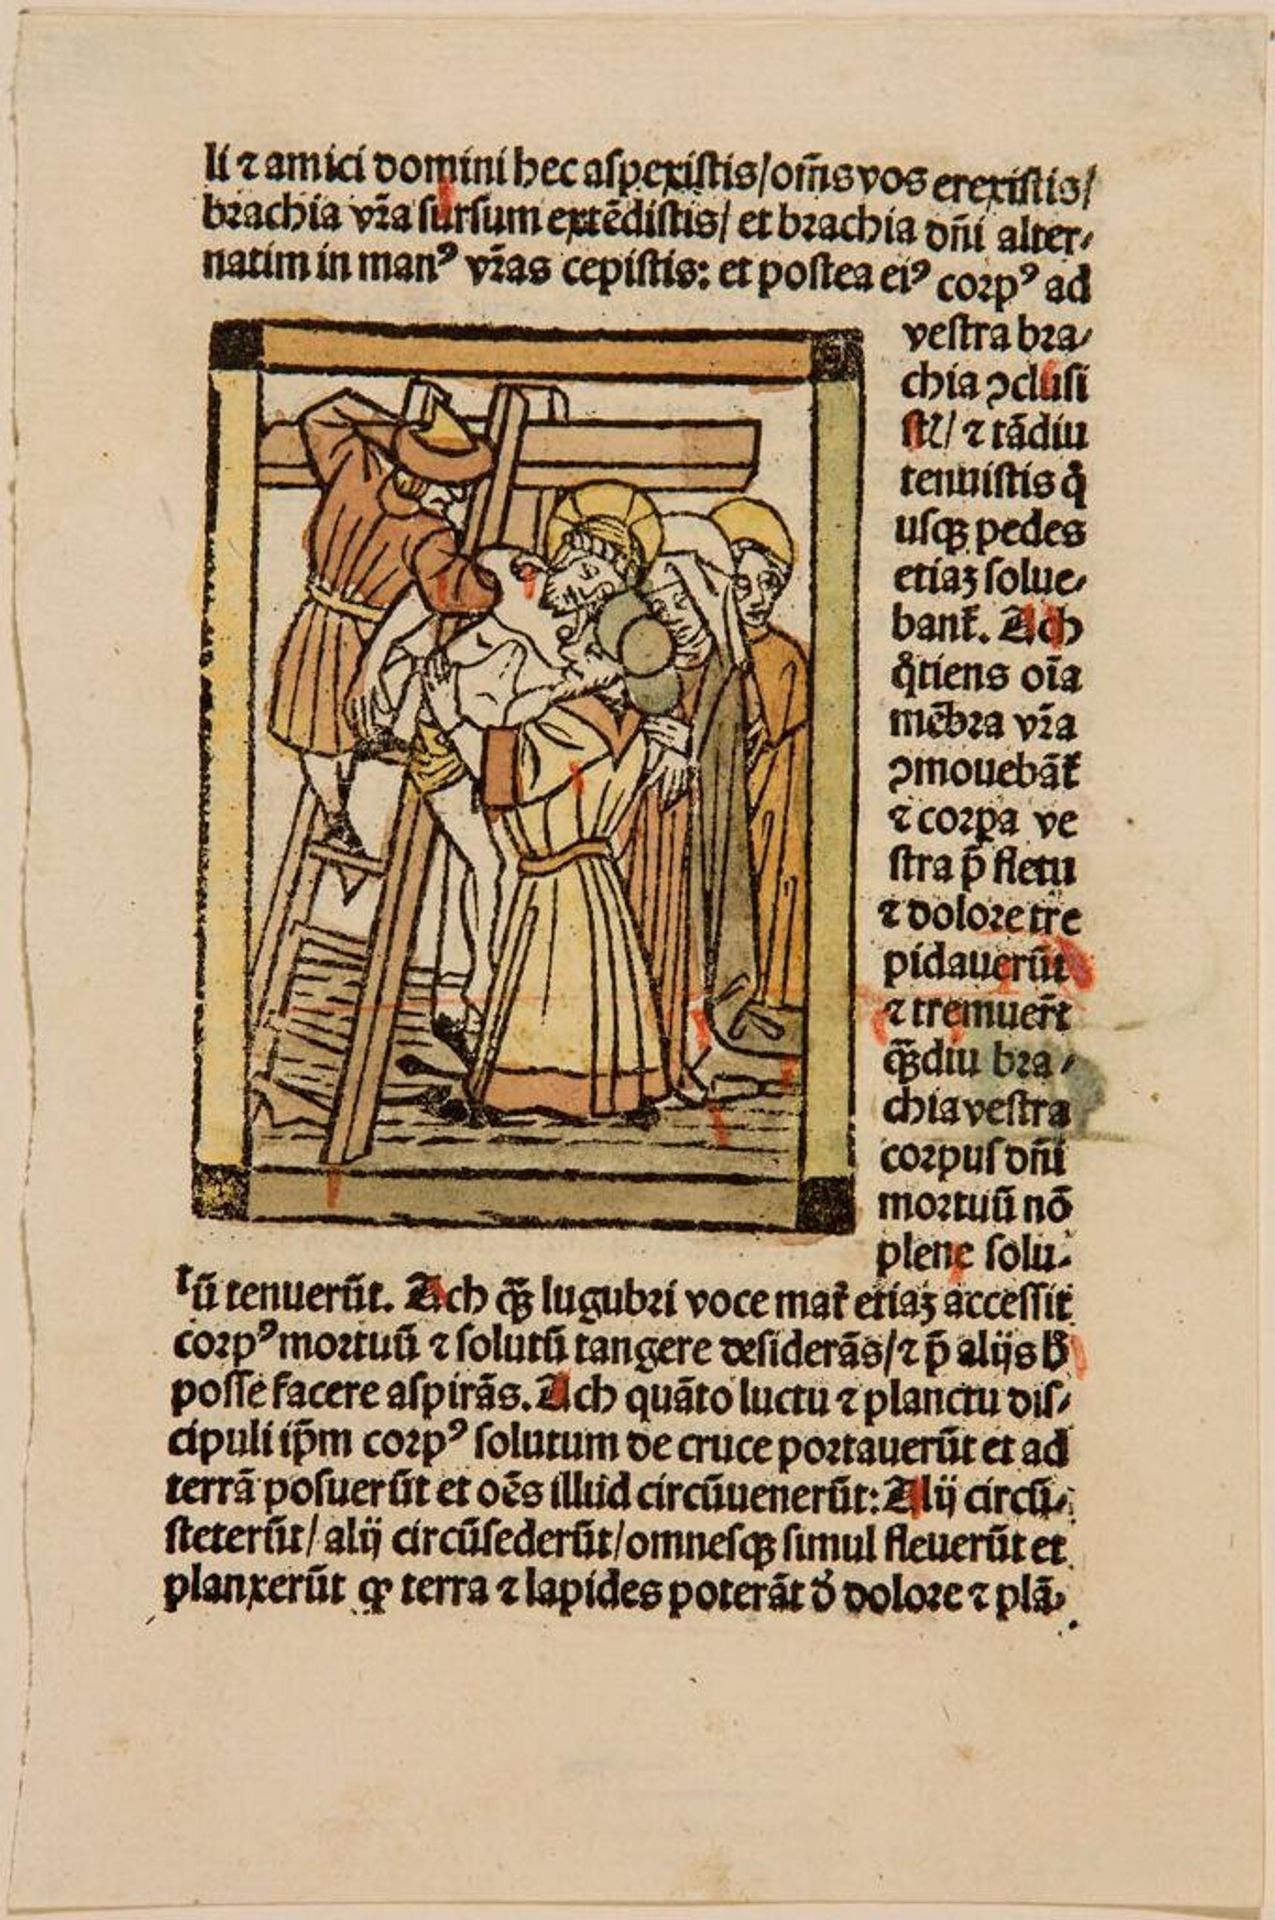 li ⁊ amici domini hec aſpexiſtis/om̄s vos erexiſtis/
brachia vr̄a ſurſum extēdiſtis/ et brachia dn̄i alter⸗
natim in manꝰ vr̄as cepiſtis: et poſtea eiꝰ corpꝰ ad
veſtra bra⸗
chia ↄcluſi
ſtꝭ/ ⁊ tādiu
tenuiſtis
uſqꝫ pedes
etiaꝫ ſolue⸗
banṫ. Ach
oīa
mēbra vr̄a
ↄmouebāt̄
⁊ corpa ve
ſtra p̄ fletu
⁊ dolore tre
pidauerūt
⁊ tremuer̄t
qꝫ̄diu bra⸗
chia veſtra
corpus dn̄i
mortuū nō
plene ſolu⸗
tū tenuerūt. Ach qꝫ̄ lugubri voce mat̄ etiaꝫ acceſſit
corpꝰ mortuū ⁊ ſolutū tangere deſiderās/⁊ p̄ alijs
poſſe facere aſpirās. Ach quāto luctu ⁊ planctu diſ⸗
cipuli ip̄m corpꝰ ſolutum de cruce portauerūt et ad
terrā poſuerūt et oēs illud circūuenerūt: Alij circū⸗
ſteterūt/ alij circūſederūt/omneſqꝫ ſimul fleuerūt et
planxerūt terra ⁊ lapides poterāt dolore ⁊ plā⸗